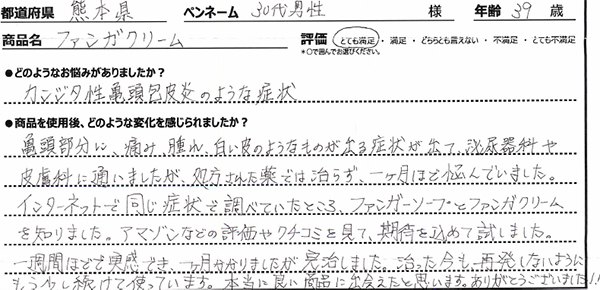 都道府県 熊本県 ペンネーム 30代男性 様 年齢 39 歳
商品名 ファンガクリーム 評価 とても満足・満足・どちらとも言えない・不満足・とても不満足
*○で囲んでお選びください。
●どのようなお悩みがありましたか?
カンジタ性亀頭包皮炎のような症状
●商品を使用後、どのような変化を感じられましたか?
亀頭部分に、痛み、腫れ、白い皮のようなものが出る症状が出て、泌尿器科や
皮膚科に通いましたが、処方された薬では治らず、一ヶ月ほど悩んでいました。
インターネットで同じ症状で調べていたところ、ファンガーソープとファンガクリーム
を知りました。アマゾンなどの評価やクチコミを見て、期待を込めて試しました。
一週間ほどで実感でき、一ヶ月かかりましたが完治しました。治った今も、再発しないように
もう少し続けて使っています。本当に良い商品に出会えたと思います。ありがとうございました!!